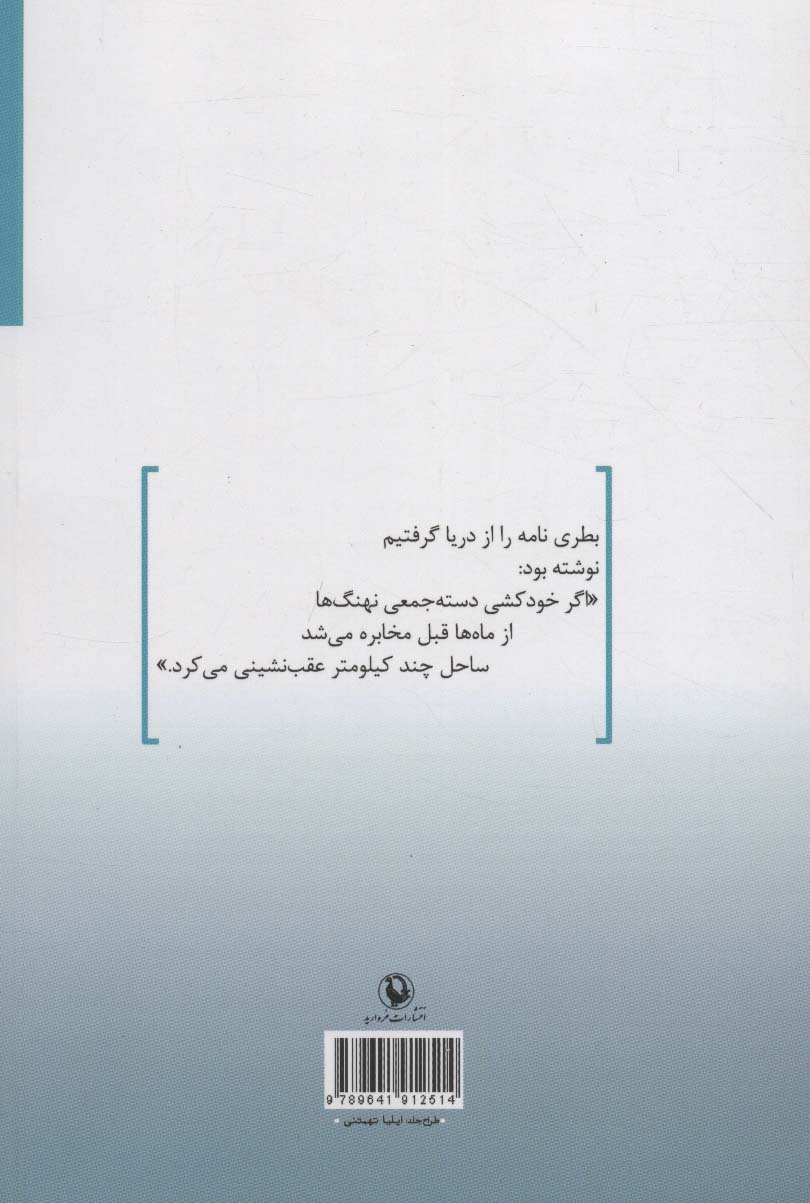 بطری نامه را از دریا گرفتیم
نوشته بود:
«اگر خودکشی دسته‌جمعی نهنگ‌ها
از ماه‌ها قبل مخابره می‌شد
ساحل چند کیلومتر عقب‌نشینی می‌کرد.»
انتشارات مروارید
9 789641 912514
• طراح جلد: ایلیا تهمتنی •